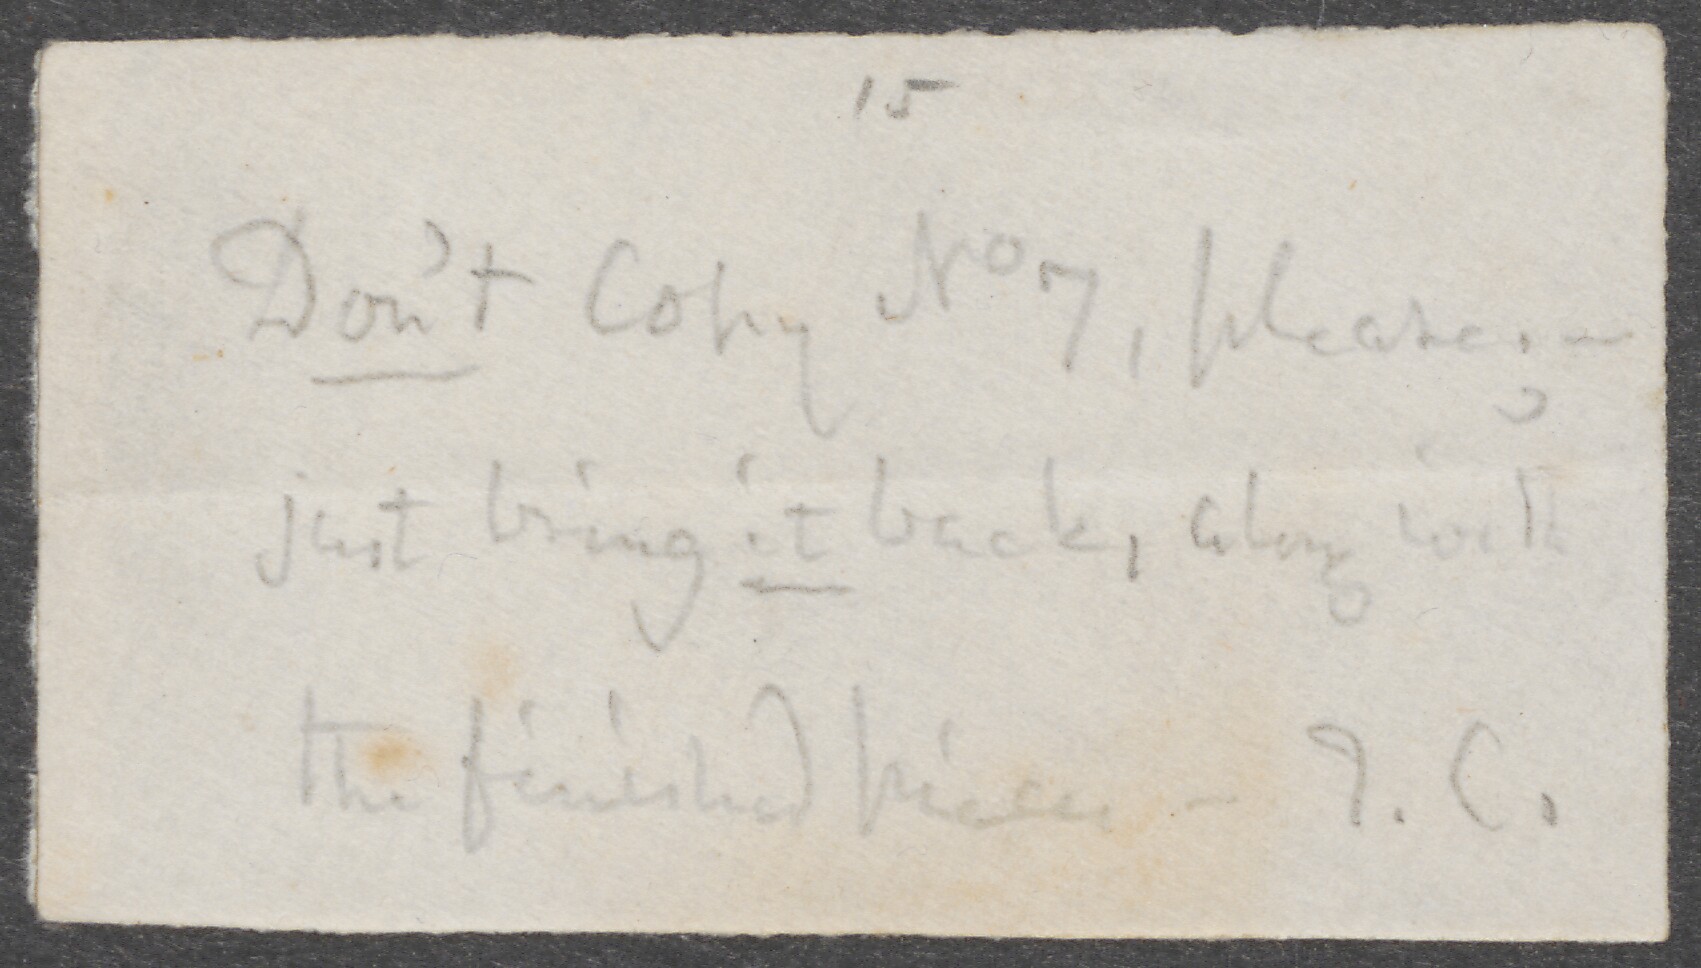 15
Don't Copy No 7, please; —
just bring it back, along with
the finished pieces — T. C.